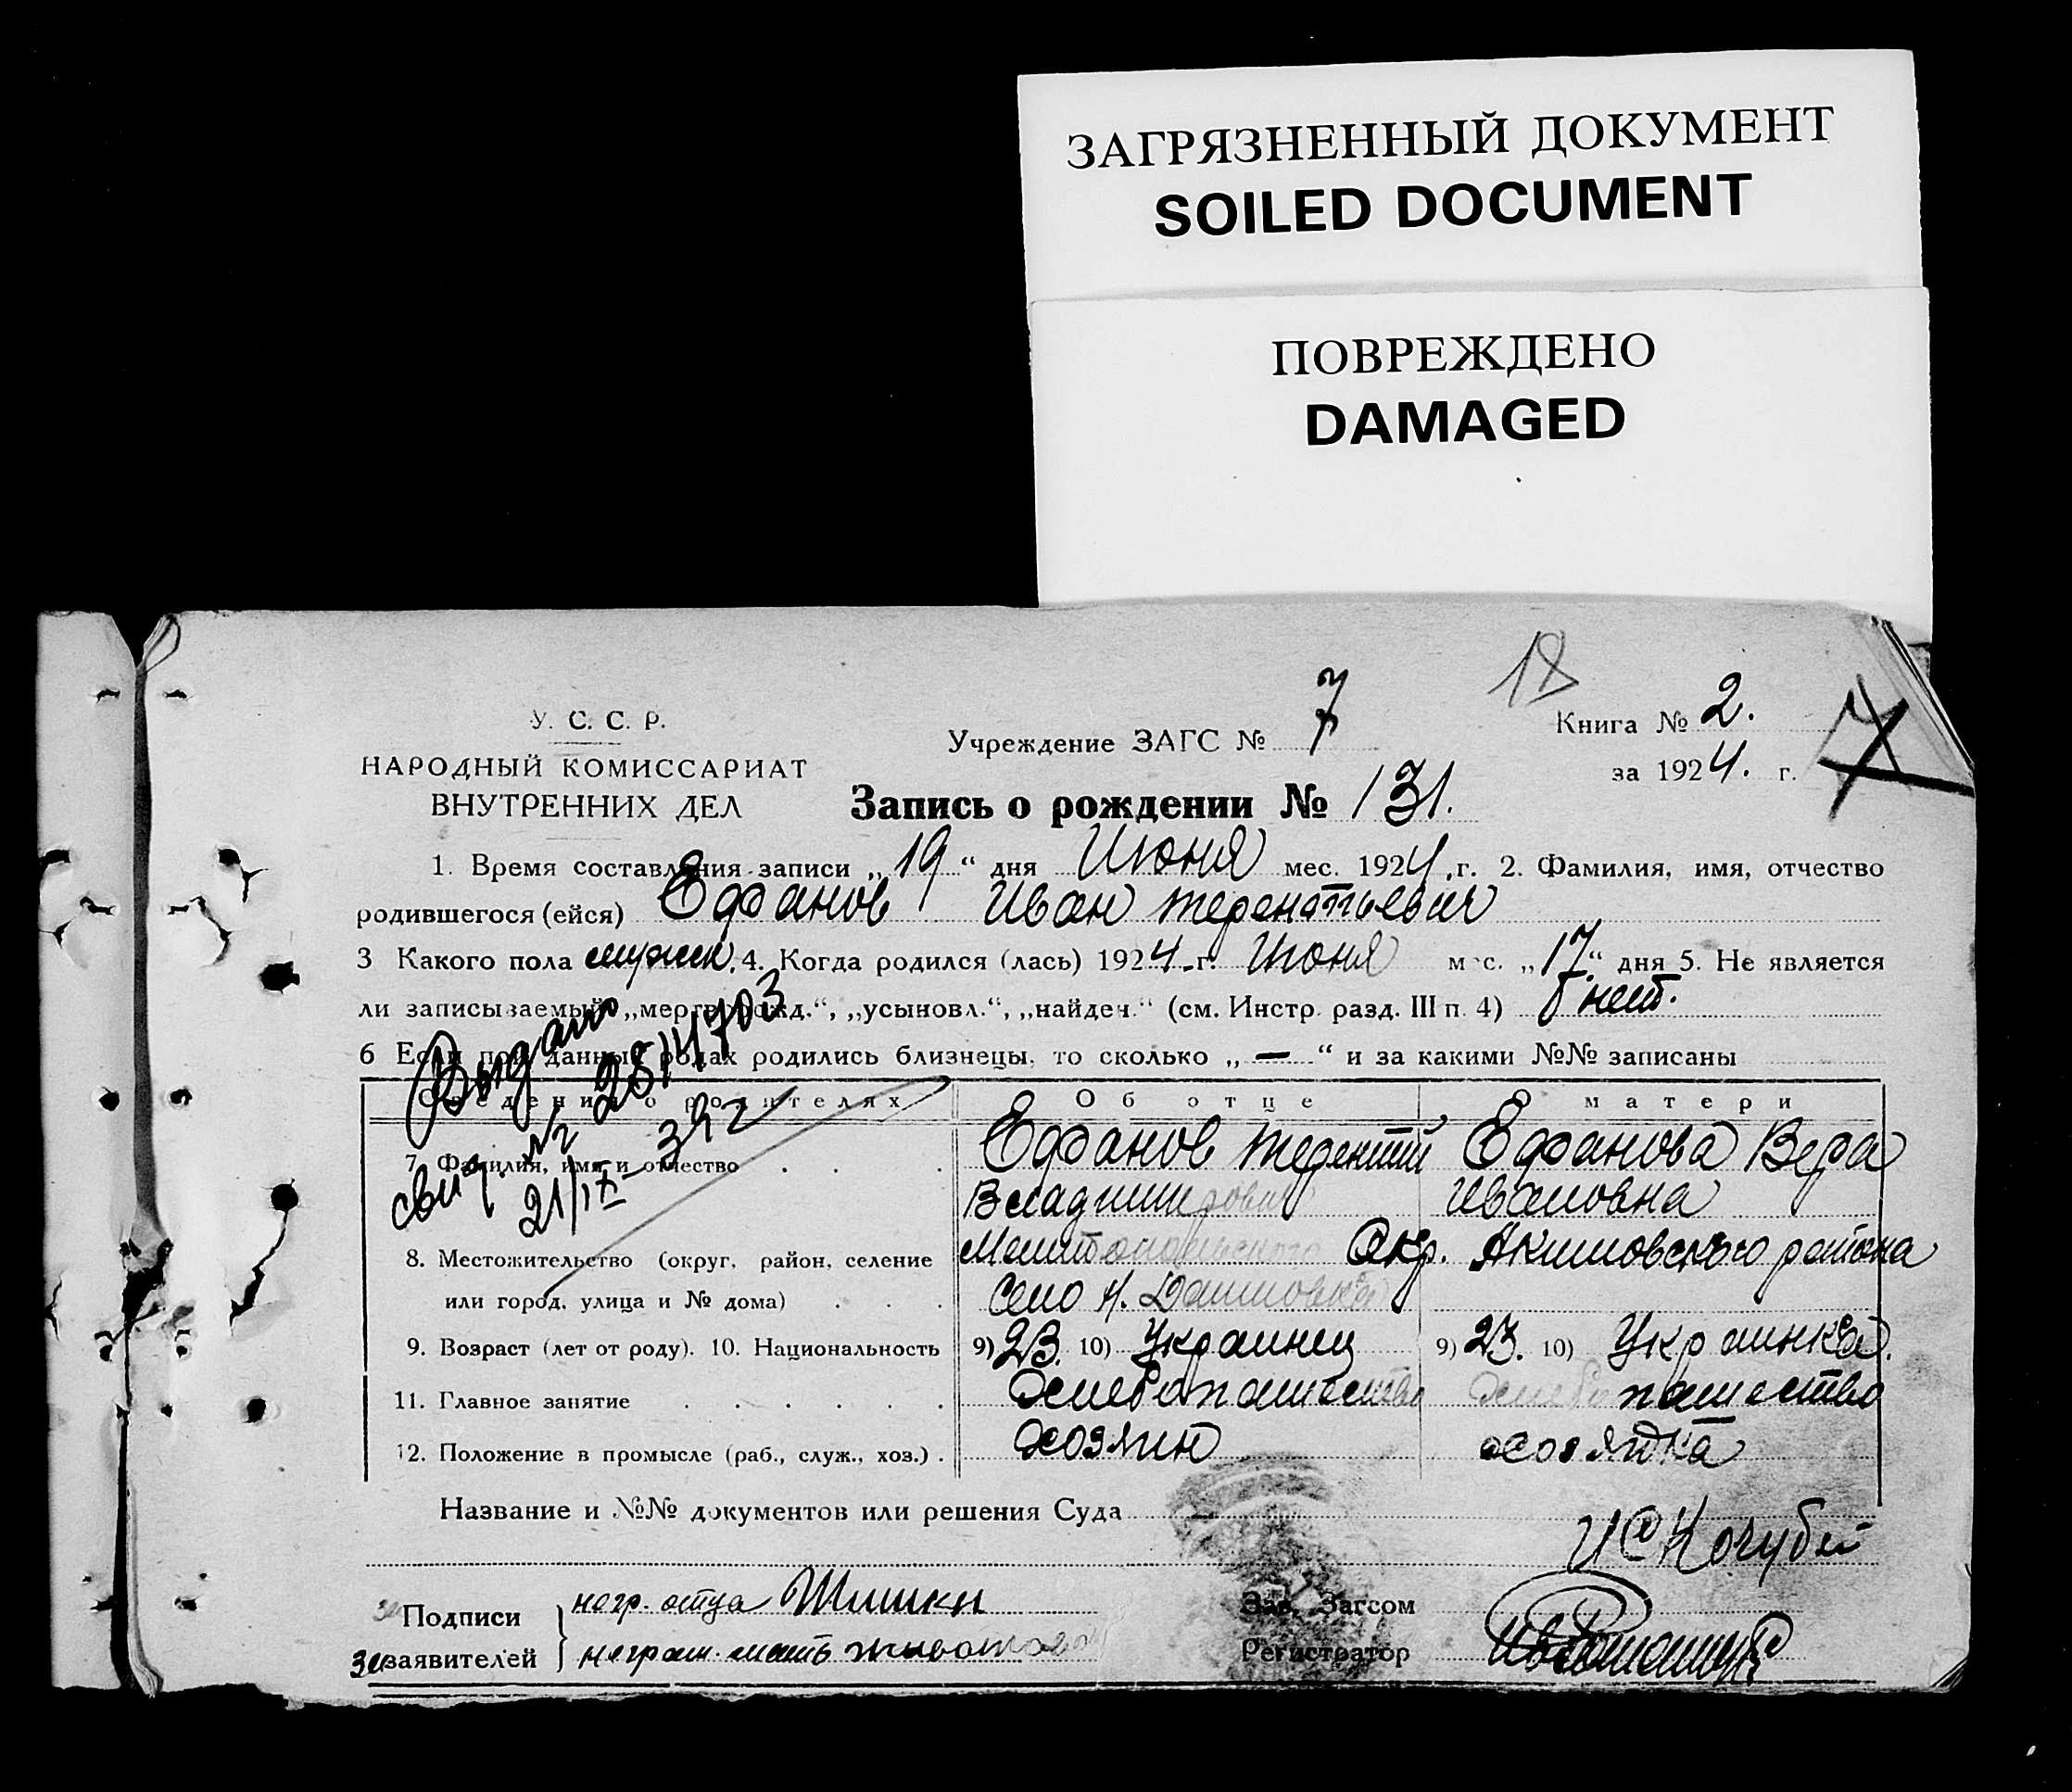 ЗАГРЯЗНЕННЫЙ ДОКУМЕНТ
SOILED DOCUMENT
ПОВРЕЖДЕНО
DAMAGED
18
У. С. С. Р.
НАРОДНЫЙ КОМИССАРИАТ
ВНУТРЕННИХ ДЕЛ
Учреждение ЗАГС № 7
Книга № 2.
за 1924. г.
Запись о рождении № 131.
1. Время составления записи „19“ дня Июня мес. 1924 г. 2. Фамилия, имя, отчество
родившегося (ейся) Ефанов Иван Терентьевич
3 Какого пола мужск. 4. Когда родился (лась) 1924 г. Июня мес. „17“ дня 5. Не является
ли записываемый „мертворожд.“, „усыновл.“, „найдеч.“ (см. Инстр. разд. III п. 4) нет.
6 Если при данных родах родились близнецы, то сколько „—“ и за какими №№ записаны
Выдано
свид. № 28114703
21/IX 392
Сведения о родителях Об отце О матери
7. Фамилия, имя и отчество Ефанов Терентий Ефанова Вера
Владимирович Ивановна
8. Местожительство (округ, район, селение Мелитопольского Окр. Акимовского района
или город, улица и № дома) Село Н. Даниловка
9. Возраст (лет от роду). 10. Национальность 9) 23. 10) Украинец 9) 23. 10) Украинка.
11. Главное занятие Хлебопашество Хлебопашество
12. Положение в промысле (раб., служ., хоз.) Хозяин хозяйка
Название и №№ документов или решения Суда
И С Кочубей
Подписи
заявителей
негр. отца Шишки
за неграм. мать
Зав. Загсом
Регистратор